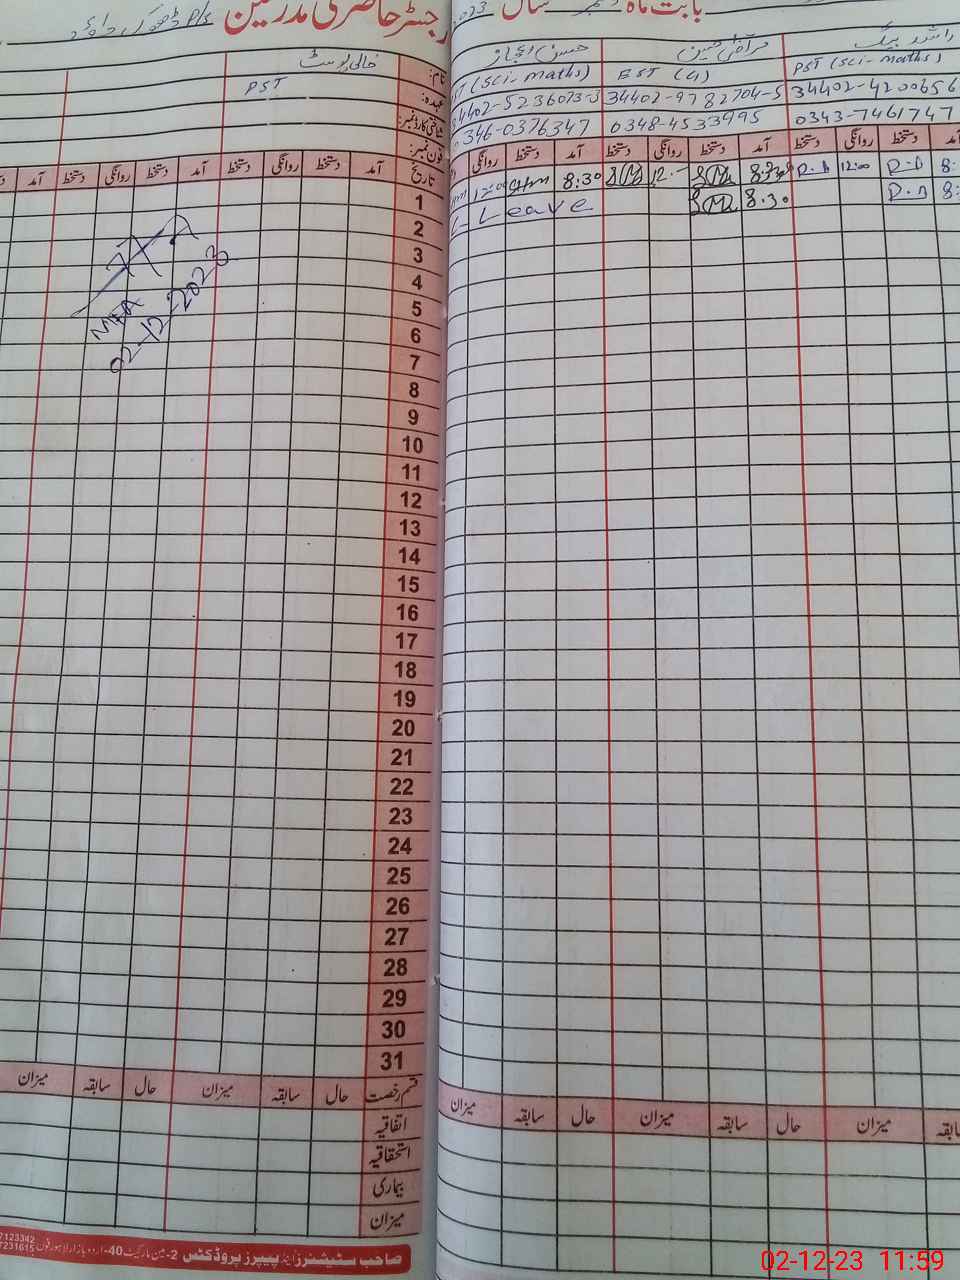 رجسٹر حاضری مدرسین
بابت ماہ دسمبر سال 2023
P/S
نام:
خالی پوسٹ
حسن اعجاز
راشد بیگ
عہدہ:
PST
PST (Sci-maths)
EST
PST (Sci-Maths)
شناختی کارڈ نمبر:
34402-5236073-3
34402-9782704-5
34402-4200656
فون نمبر:
0346-0376347
0348-4533495
0343-7461747
تاریخ آمد دستخط روانگی دستخط آمد دستخط روانگی دستخط آمد
آمد دستخط روانگی دستخط آمد دستخط روانگی
1
12:00 8:30 12:00 R.B 12:00 R.B 8:
2
L- Leave 8.30 R.B 8:
3
4
5
6
7
8
9
10
11
12
13
14
15
16
17
18
19
20
21
22
23
24
25
26
27
28
29
30
31
MEA
02-12-2023
قسم رخصت حال سابقہ میزان حال سابقہ میزان
سابقہ میزان حال سابقہ میزان حال سابقہ میزان
اتفاقیہ
استحقاقیہ
بیماری
میزان
صاحب سٹیشنرز اینڈ پیپرز پروڈکٹس 2-مین مارکیٹ 40-اردو بازار لاہور فون
7123342
7231615
02-12-23 11:59